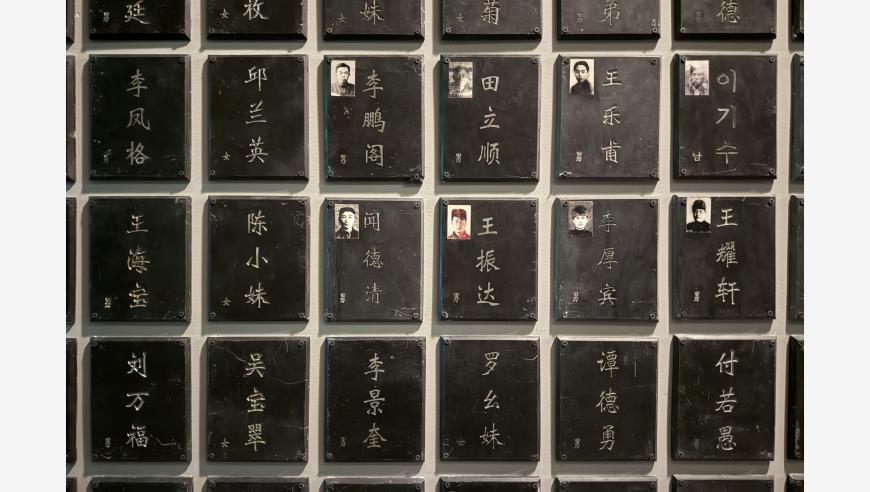 廷
男
敉
女
妹
女
菊
女
弟
男
德
男
李凤格
男
邱兰英
女
李鹏阁
男
田立顺
男
王乐甫
男
이기수
남
王海宝
男
陈小妹
女
闻德清
男
王振达
男
李厚宾
男
王耀轩
男
刘万福
男
吴宝翠
女
李景奎
男
罗幺妹
女
谭德勇
男
付若愚
男